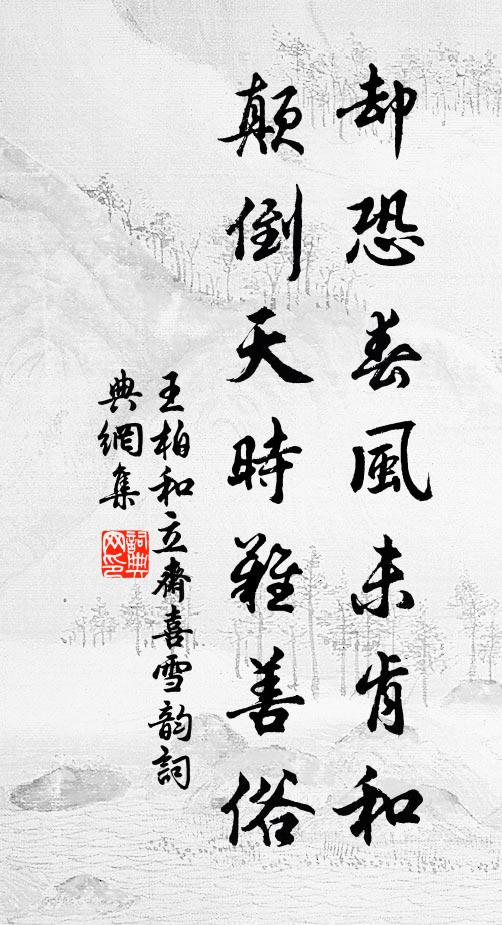 却恐春風未肯和
顛倒天時難善俗
王柏和立齋喜雪韵詞
典網集
詞典
网印